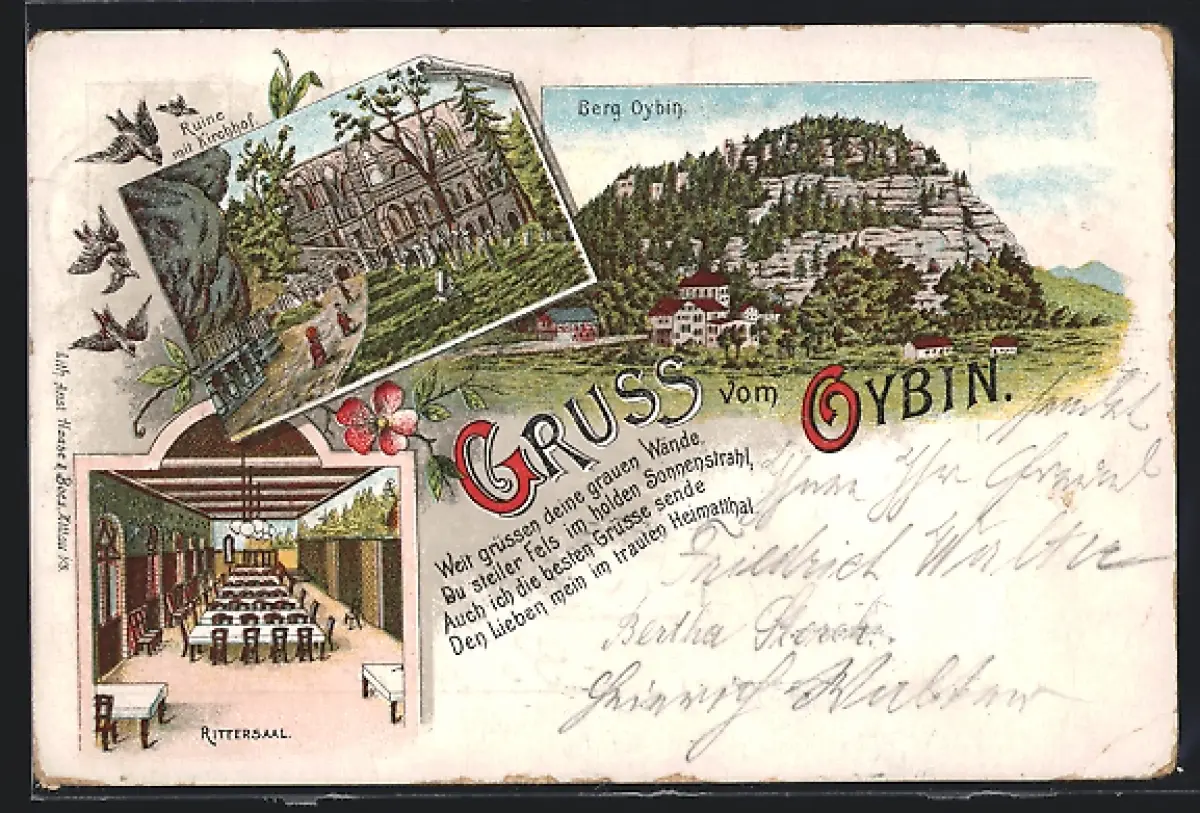 Ruine
mit Kirchhof.
Berg Oybin.
GRUSS vom OYBIN.
Weit grüssen deine grauen Wände,
Du steiler Fels im holden Sonnenstrahl,
Auch ich die besten Grüsse sende
Den Lieben mein im trauten Heimatthal.
RITTERSAAL.
Lith. Anst. Haase & Boes, Zittau i/S.
sendet
Ihnen Ihr Freund
Friedrich Walter
Bertha
Heinrich Walter